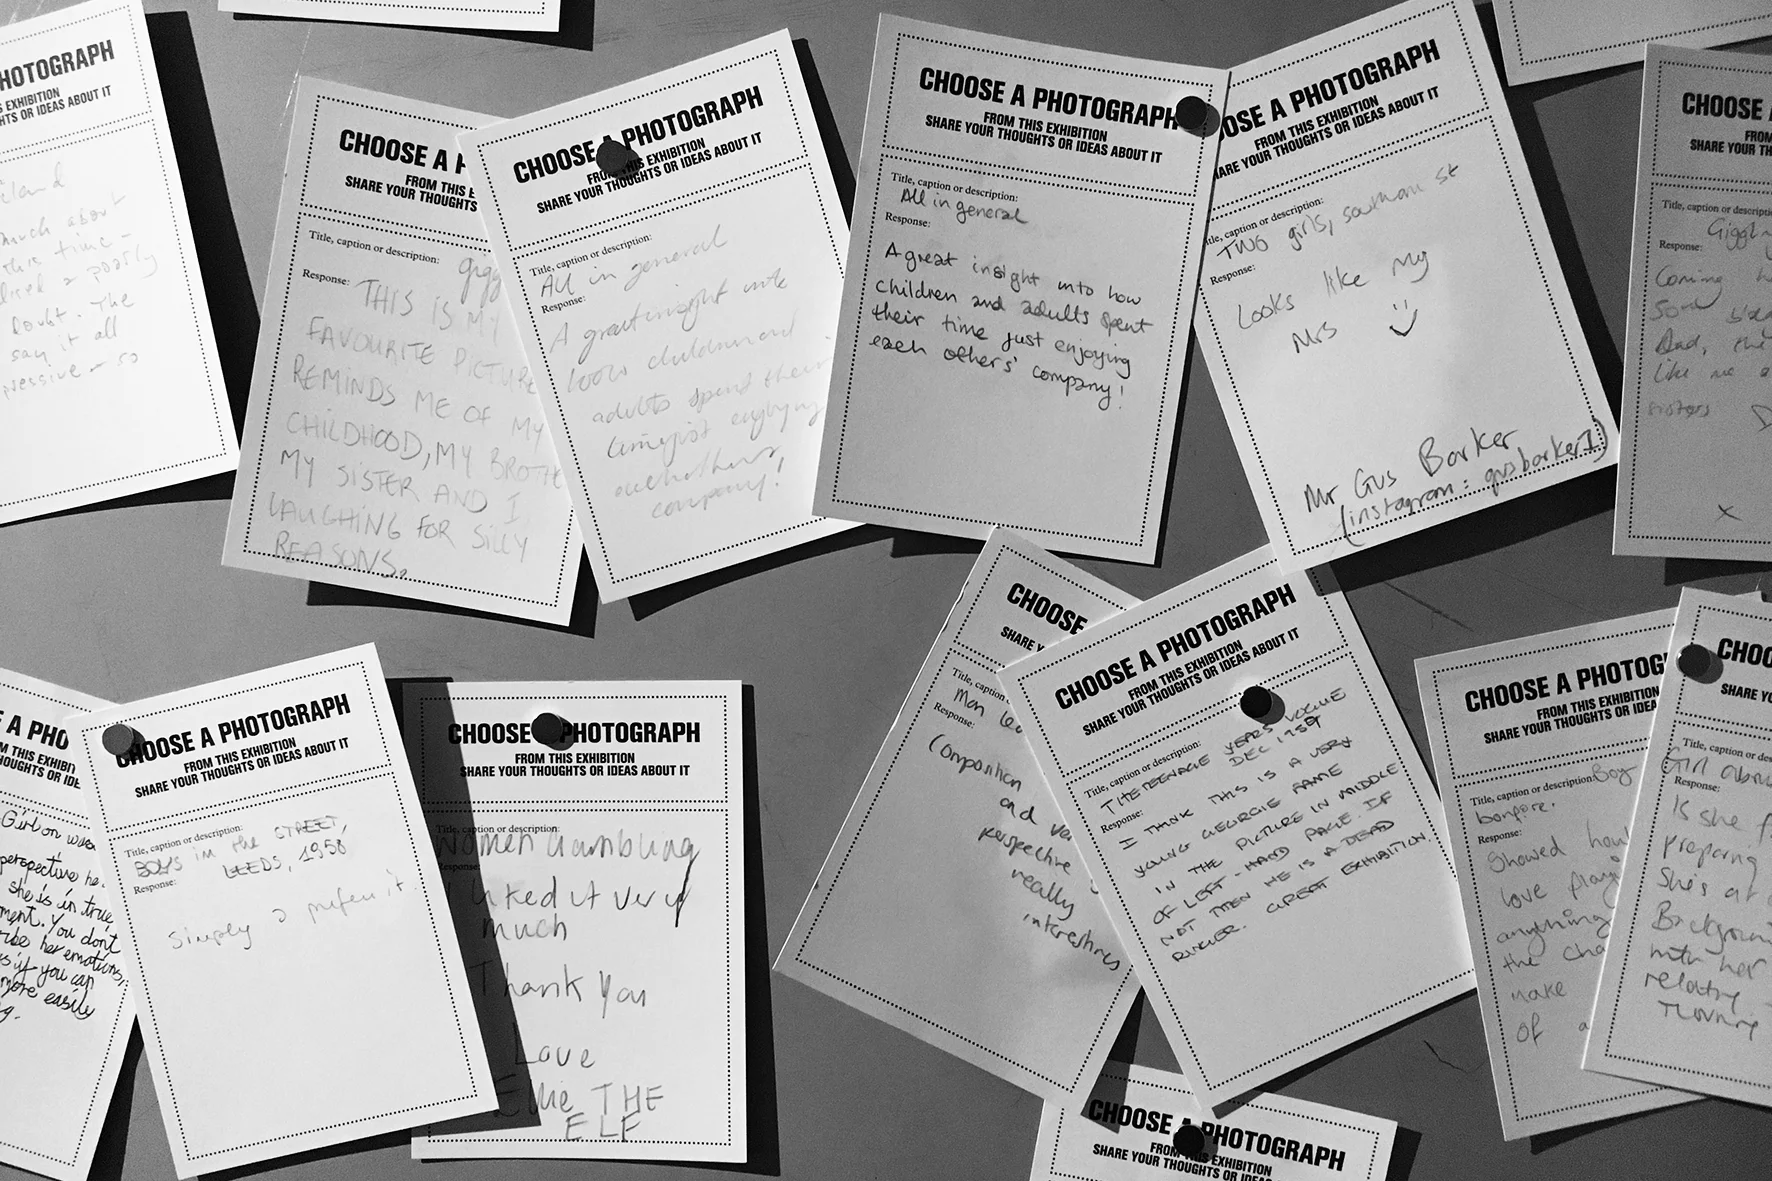 HOTOGRAPH
EXHIBITION
HTS OR IDEAS ABOUT IT
much about
this time -
poorly
Doubt. The
say it all
so
CHOOSE A P
FROM THIS E
SHARE YOUR THOUGHTS
Title, caption or description:
Response:
THIS IS MY
FAVOURITE PICTURE
REMINDS ME OF MY
CHILDHOOD, MY BROTHE
MY SISTER AND I
LAUGHING FOR SILLY
REASONS.
CHOOSE A PHOTOGRAPH
FROM THIS EXHIBITION
SHARE YOUR THOUGHTS OR IDEAS ABOUT IT
Title, caption or description:
All in general
Response:
A great insight into
children and
adults spend their
company!
CHOOSE A PHOTOGRAPH
FROM THIS EXHIBITION
SHARE YOUR THOUGHTS OR IDEAS ABOUT IT
Title, caption or description:
All in general
Response:
A great insight into how
children and adults spent
their time just enjoying
each others' company!
OOSE A PHOTOGRAPH
FROM THIS EXHIBITION
YOUR THOUGHTS OR IDEAS ABOUT IT
Title, caption or description:
TWO girls, southam st
Response:
Looks like my
Mrs :)
Mr Gus Barker
(instagram: gusbarker1)
CHOOSE A
FROM
SHARE YOUR TH
Title, caption or description:
Response:
Coming
Dad, the
like me a
sisters
x
E A PHO
THIS EXHIBIT
OUGHTS OR IDE
Girl on
perspective he
she is in true
ment. You don't
ribe her emotions,
s if you can
more easily
g.
CHOOSE A PHOTOGRAPH
FROM THIS EXHIBITION
SHARE YOUR THOUGHTS OR IDEAS ABOUT IT
Title, caption or description:
BOYS in the STREET,
LEEDS, 1958
Response:
simply I prefer it.
CHOOSE A PHOTOGRAPH
FROM THIS EXHIBITION
SHARE YOUR THOUGHTS OR IDEAS ABOUT IT
Title, caption or description:
Women Gambling
Response:
I liked it very
much
Thank you
Love
Ellie THE
ELF
CHOOSE
SHARE Y
Title, caption
Response:
Composition
and
perspective
really
interesting
CHOOSE A PHOTOGRAPH
FROM THIS EXHIBITION
SHARE YOUR THOUGHTS OR IDEAS ABOUT IT
Title, caption or description:
THE TEENAGE YEARS, VOGUE
DEC 1959
Response:
I THINK THIS IS A VERY
YOUNG GEORGIE FAME
IN THE PICTURE IN MIDDLE
OF LEFT-HAND PAGE. IF
NOT THEN HE IS A DEAD
RINGER. GREAT EXHIBITION.
CHOOSE A PHOTOG
FROM THIS EXHIBI
SHARE YOUR THOUGHTS OR IDEA
Title, caption or description: Boy
Response:
Showed how
love playi
anything
the cha
make
of a
CHOO
SHARE YO
Title, caption or des
Girl
Response:
Is she
preparing
She's at
Background
with her
relating
CHOOSE A PHOTOGRAPH
FROM THIS EXHIBITION
SHARE YOUR THOUGHTS OR IDEAS ABOUT IT